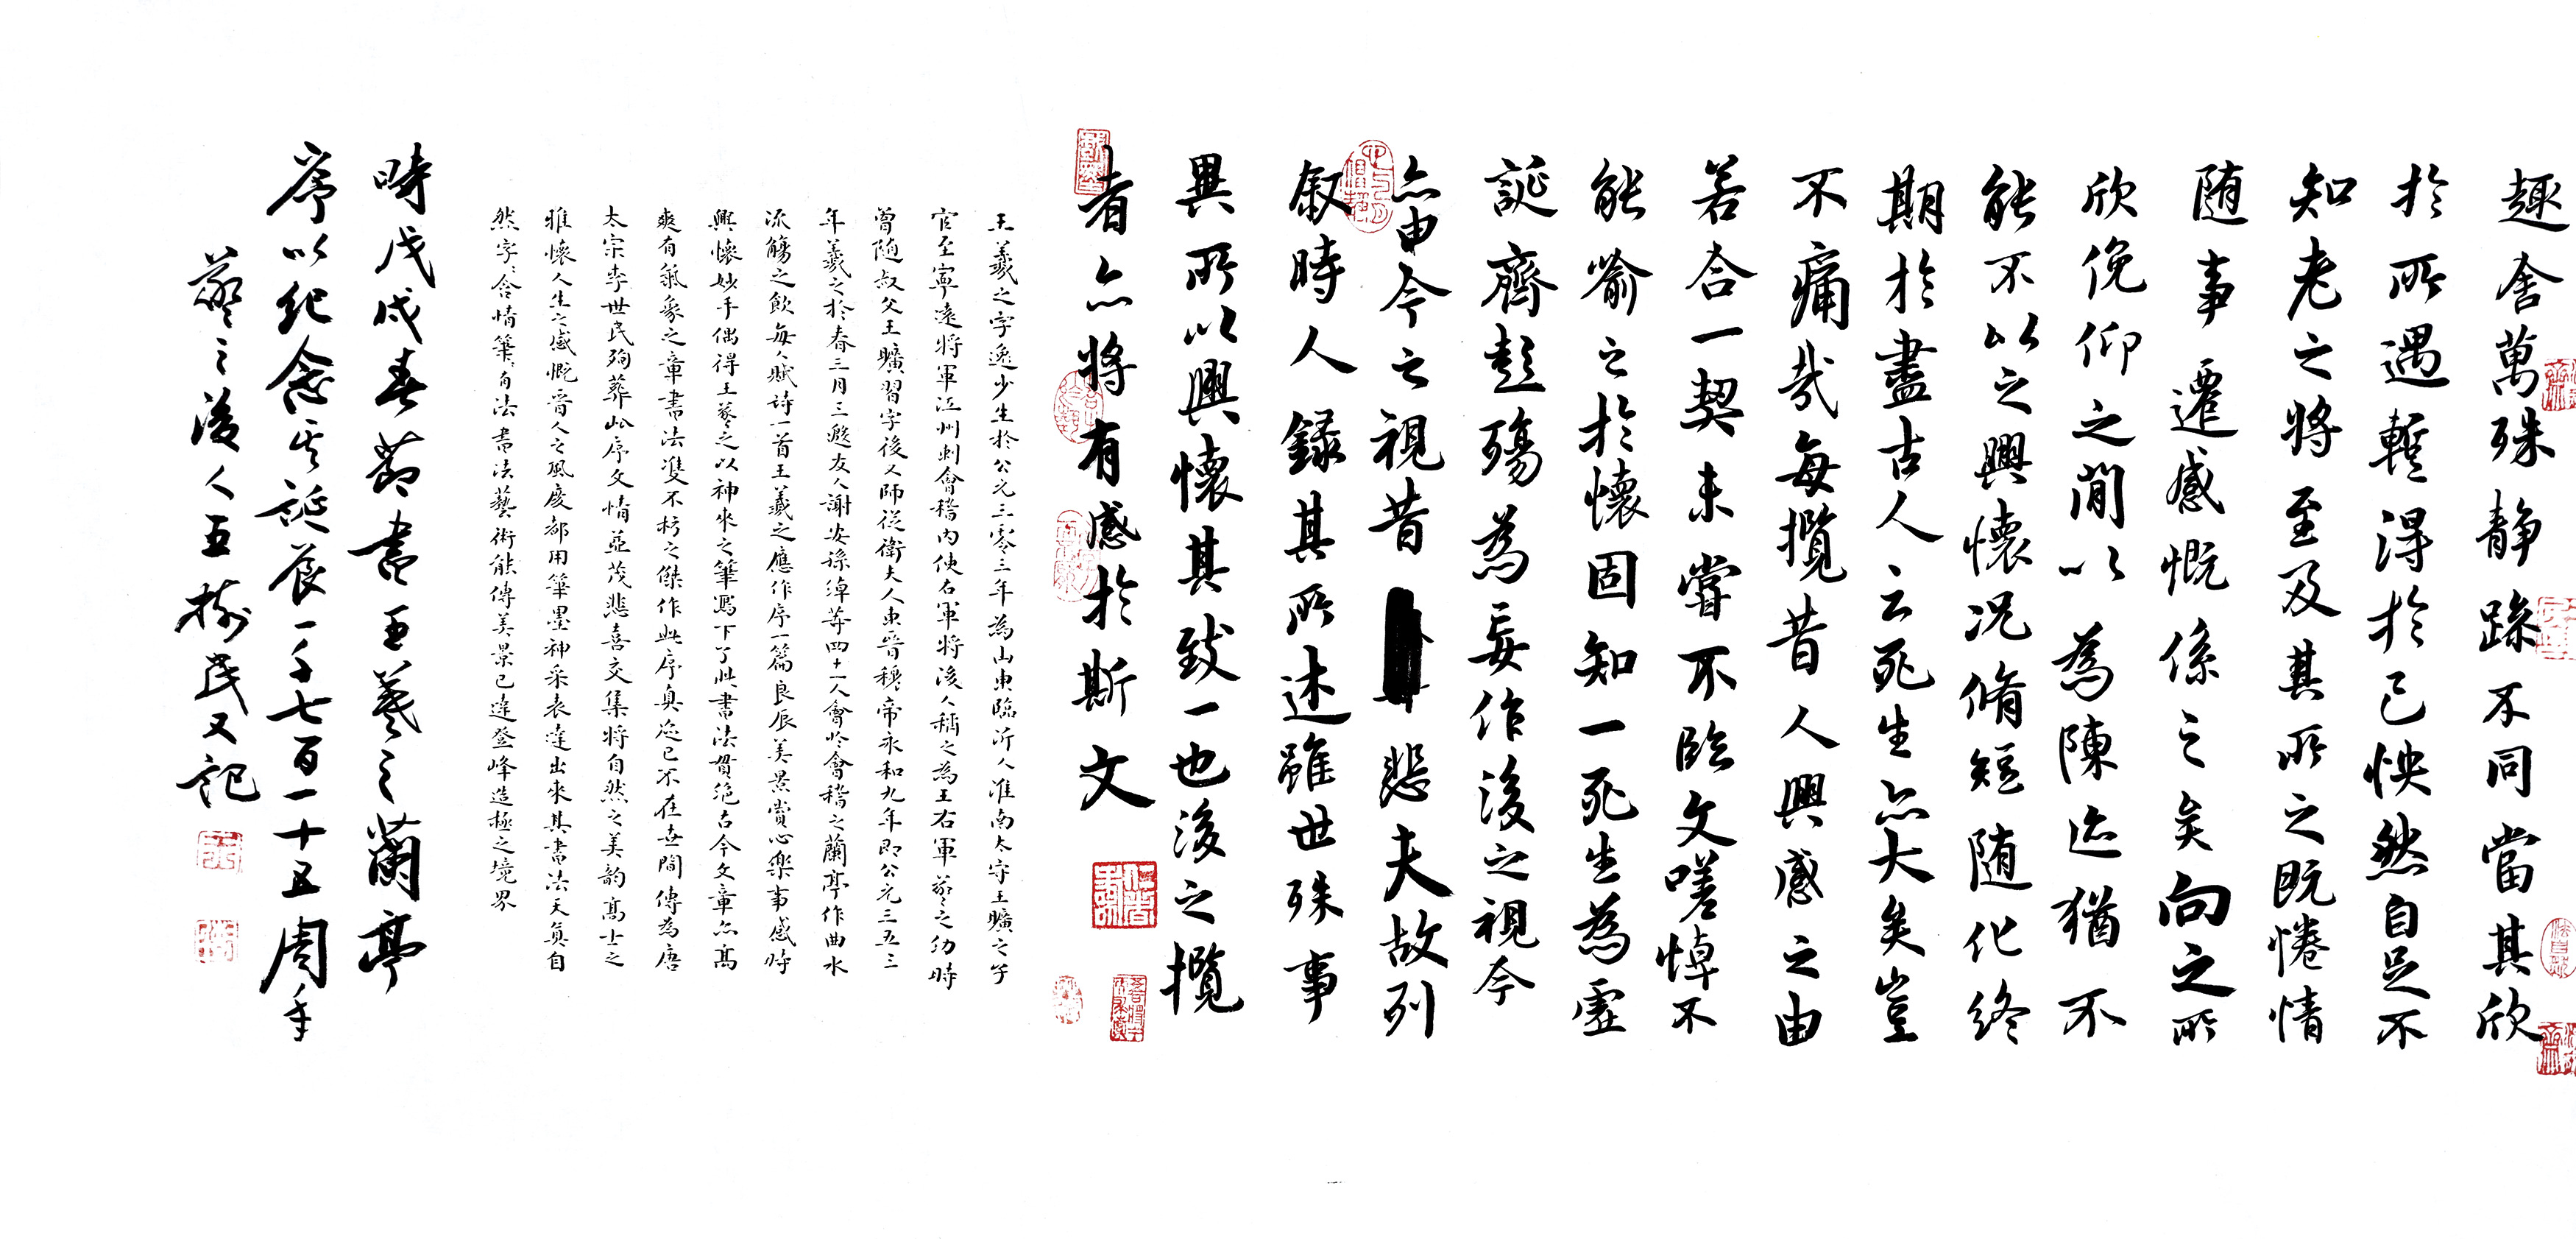 趣舍萬殊静躁不同當其欣
於所遇暫得於己怏然自足不
知老之將至及其所之既惓情
随事遷感慨係之矣向之所
欣俛仰之閒以為陳迹猶不
能不以之興懷況脩短随化終
期於盡古人云死生亦大矣豈
不痛哉每攬昔人興感之由
若合一契未嘗不臨文嗟悼不
能喻之於懷固知一死生為虛
誕齊彭殤為妄作後之視今
亦由今之視昔悲夫故列
叙時人錄其所述雖世殊事
異所以興懷其致一也後之攬
者亦將有感於斯文
王羲之字逸少生於公元三零三年為山東臨沂人淮南太守王曠之子
官至寧遠將軍江州刺會稽內使右軍將後人稱之為王右軍羲之幼時
曾随叔父王曠習字後又師從衛夫人東晉穆帝永和九年即公元三五三
年羲之於春三月三邀友人謝安孫淖等四十一人會於會稽之蘭亭作曲水
流觴之飲每人賦詩一首王羲之應作序一篇良辰美景賞心樂事感時
興懷妙手偶得王羲之以神來之筆寫下了此書法貫絶古今文章亦髙
爽有氣象之章書法雙不朽之傑作此序真迹已不在世間傳為唐
太宗李世民殉葬此序文情並茂悲喜交集將自然之美韵髙士之
雅懷人生之感慨晋人之風度都用筆墨神采表達出來其書法天真自
然字字含情筆筆有法書法藝術能傳美景已達登峰造極之境界
時戊戌春節書王羲之蘭亭
序以紀念其誕辰一千七百一十五周年
羲之後人王樹民又記